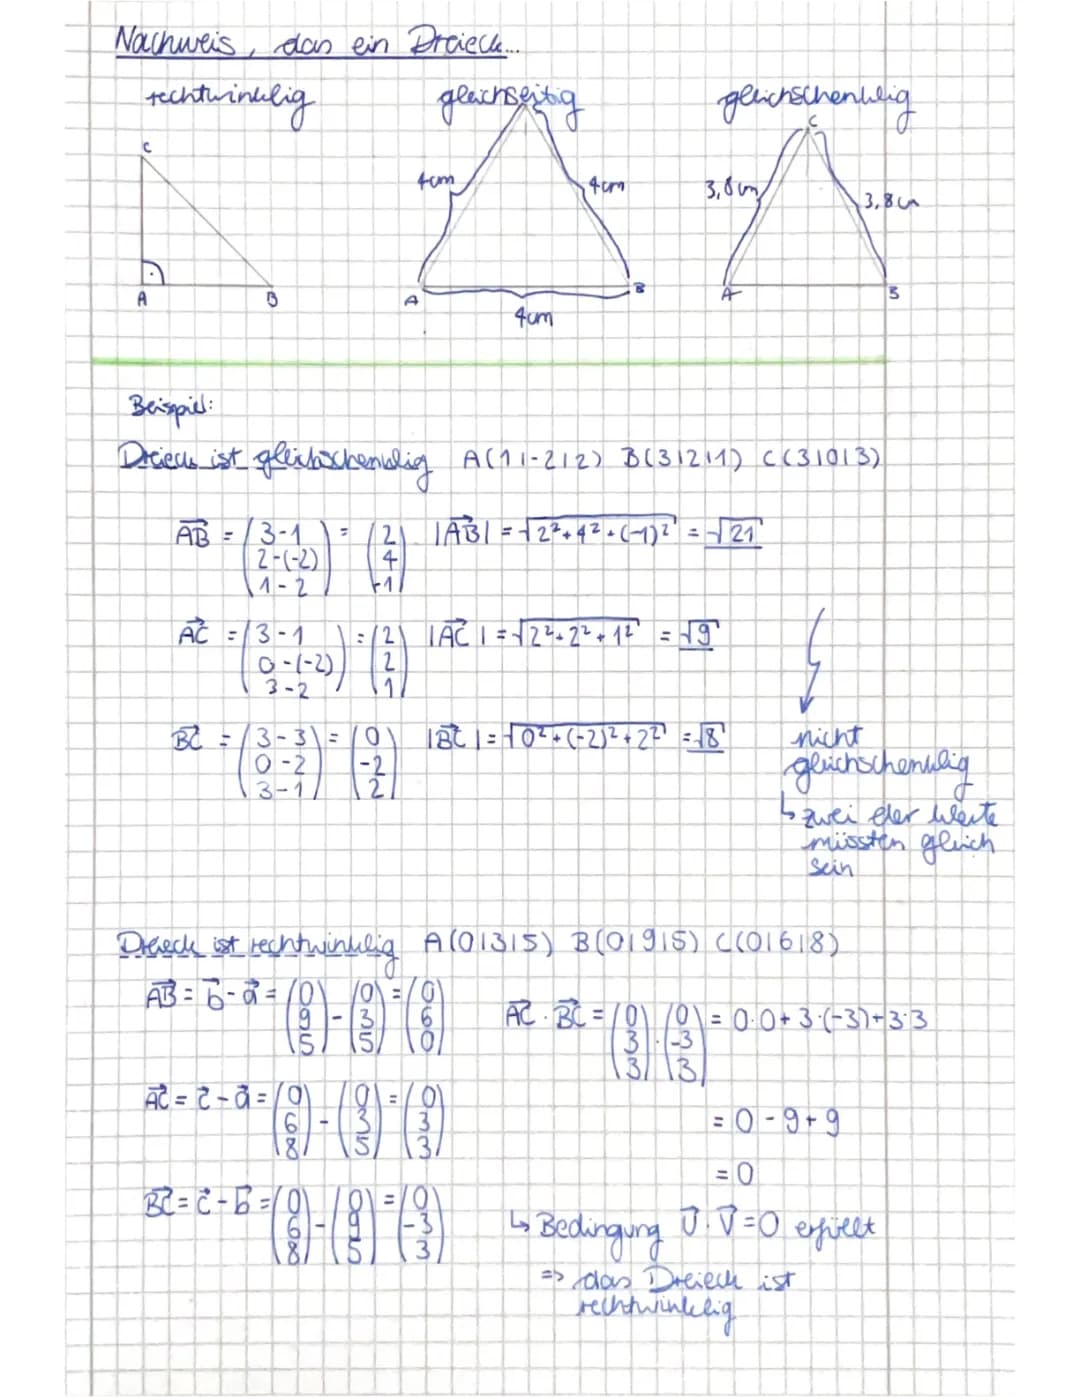 Nachweis, das ein Dreieck...
rechtwinklig gleichseitig gleichschenklig
C C
4cm 4cm 3,8cm 3,8cm
A B A B A B
4cm
Beispiel:
Dreieck ist gleichschenklig A(1|-2|2) B(3|2|1) C(3|0|3)
AB⃗ = (3-1 2-(-2) 1-2) = (2 4 -1) |AB⃗| = √2²+4²+(-1)² = √21
AC⃗ = (3-1 0-(-2) 3-2) = (2 2 1) |AC⃗| = √2²+2²+1² = √9
BC⃗ = (3-3 0-2 3-1) = (0 -2 2) |BC⃗| = √0²+(-2)²+2² = √8
nicht
gleichschenklig
↳ zwei der Werte
müssten gleich
sein
Dreieck ist rechtwinklig A(0|3|5) B(0|9|5) C(0|6|8)
AB⃗ = b⃗ - a⃗ = (0 9 5) - (0 3 5) = (0 6 0)
AC⃗ · BC⃗ = (0 3 3) · (0 -3 3) = 0·0+3·(-3)+3·3
AC⃗ = c⃗ - a⃗ = (0 6 8) - (0 3 5) = (0 3 3)
= 0 - 9 + 9
= 0
BC⃗ = c⃗ - b⃗ = (0 6 8) - (0 9 5) = (0 -3 3)
↳ Bedingung U⃗ · V⃗ = 0 erfüllt
=> das Dreieck ist
rechtwinklig